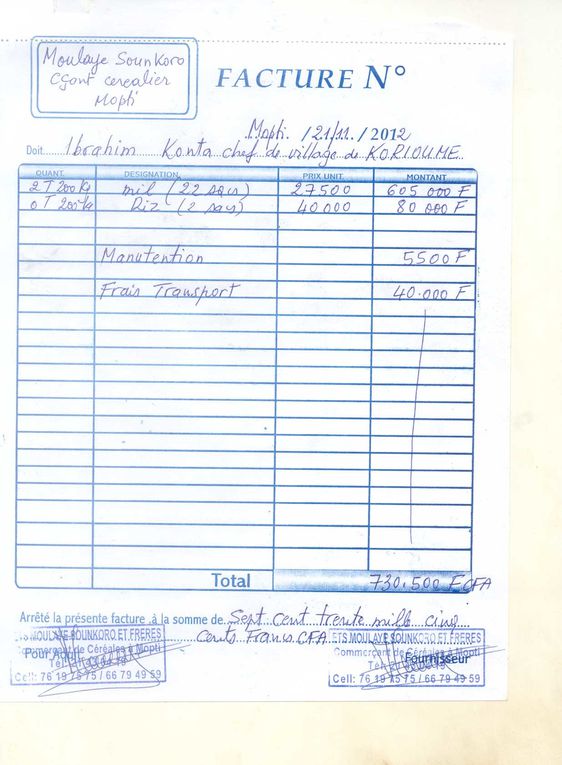 Moulaye Sounkoro
Cgant cerealier
Mopti
FACTURE N°
Mopti. /21/11. / 2012
Doit Ibrahim Konta chef de village de KORIOUME
QUANT. DESIGNATION PRIX UNIT. MONTANT
2T200kg mil (22 sacs) 27500 605 000 F
0T200kg Riz (2 sacs) 40000 80 000 F
Manutention 5500 F
Frais Transport 40.000 F
Total 730.500 F CFA
Arrêté la présente facture à la somme de Sept cent trente mille cinq
cents Francs CFA
ETS MOULAYE SOUNKORO ET FRERES
Commerçant de Céréales à Mopti
Pour Acquit
Cell: 76 19 75 75 / 66 79 49 59
ETS MOULAYE SOUNKORO ET FRERES
Commerçant de Céréales à Mopti
Fournisseur
Cell: 76 19 75 75 / 66 79 49 59